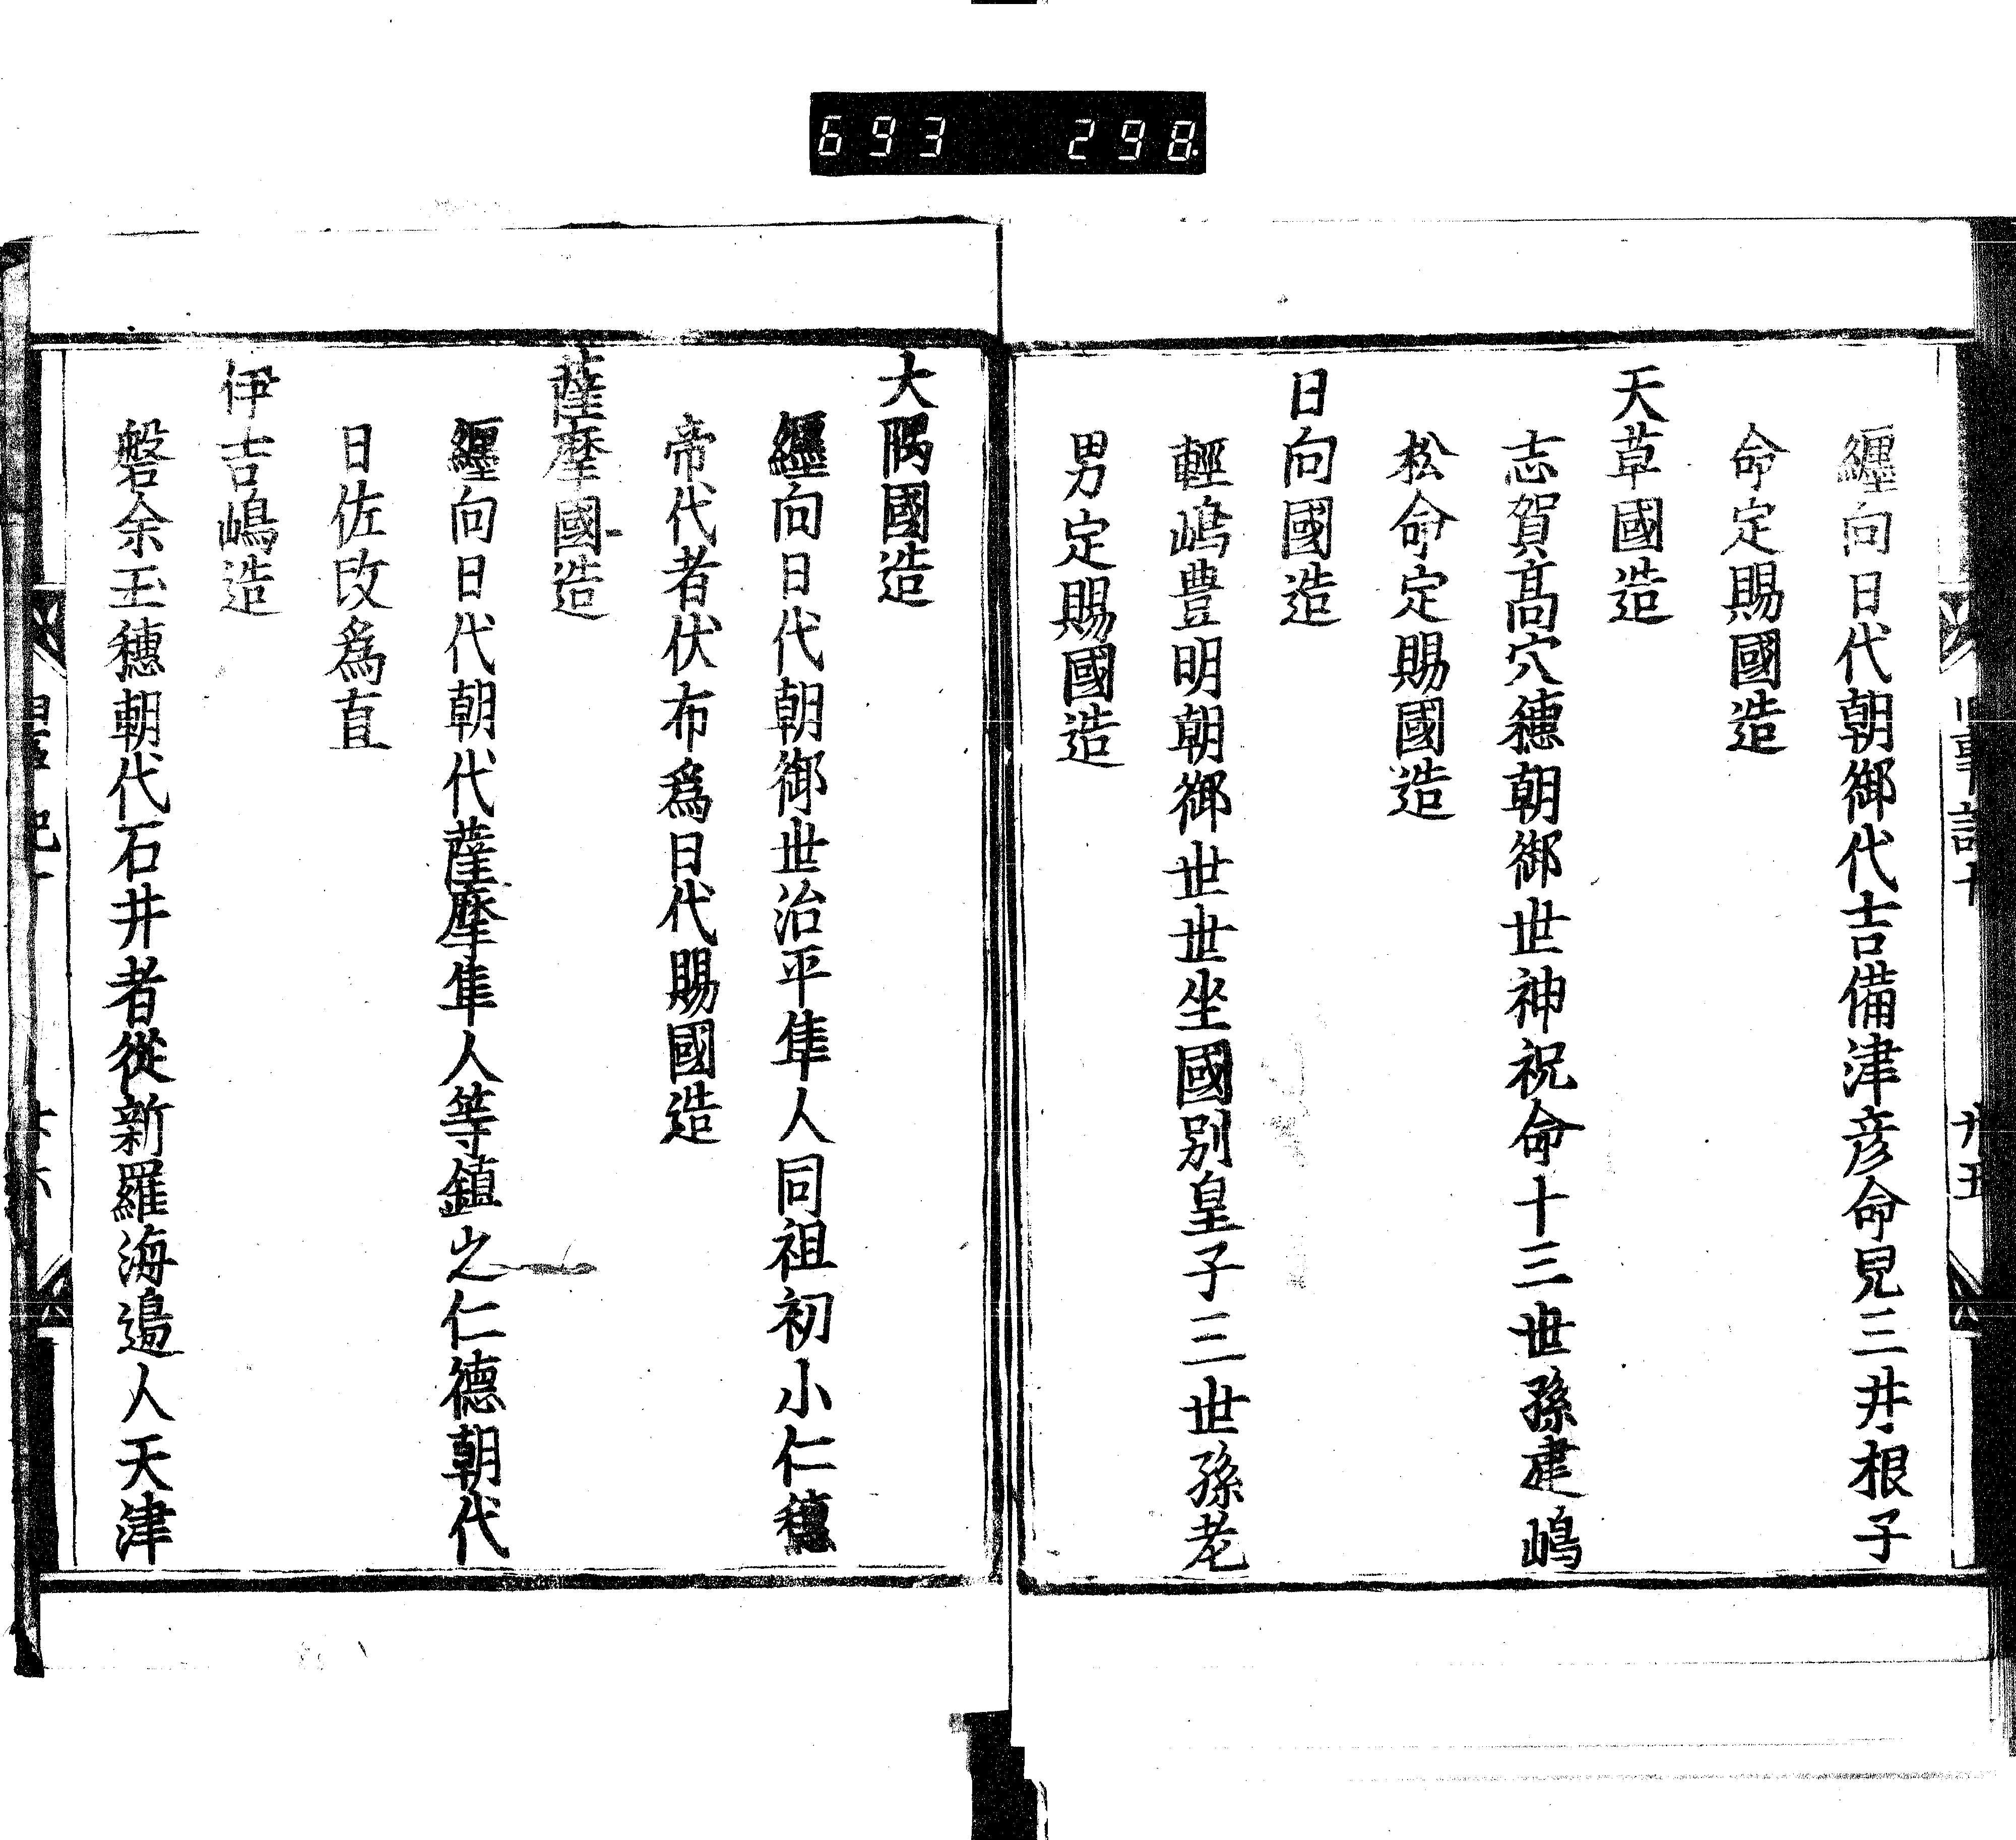 693 298.
纏向日代朝御代吉備津彦命児三井根子
命定賜國造
天草國造
志賀髙穴穗朝御世神祝命十三世孫建嶋
松命定賜國造
日向國造
輕嶋豊明朝御世世坐國別皇子三世孫老
男定賜國造
大隅國造
纏向日代朝御世治平隼人同祖初小仁德
帝代者伏布爲日代賜國造
薩摩國造
纏向日代朝代薩摩隼人等鎮之仁德朝代
日佐改爲直
伊吉嶋造
磐余玉穗朝代石井者從新羅海邉人天津